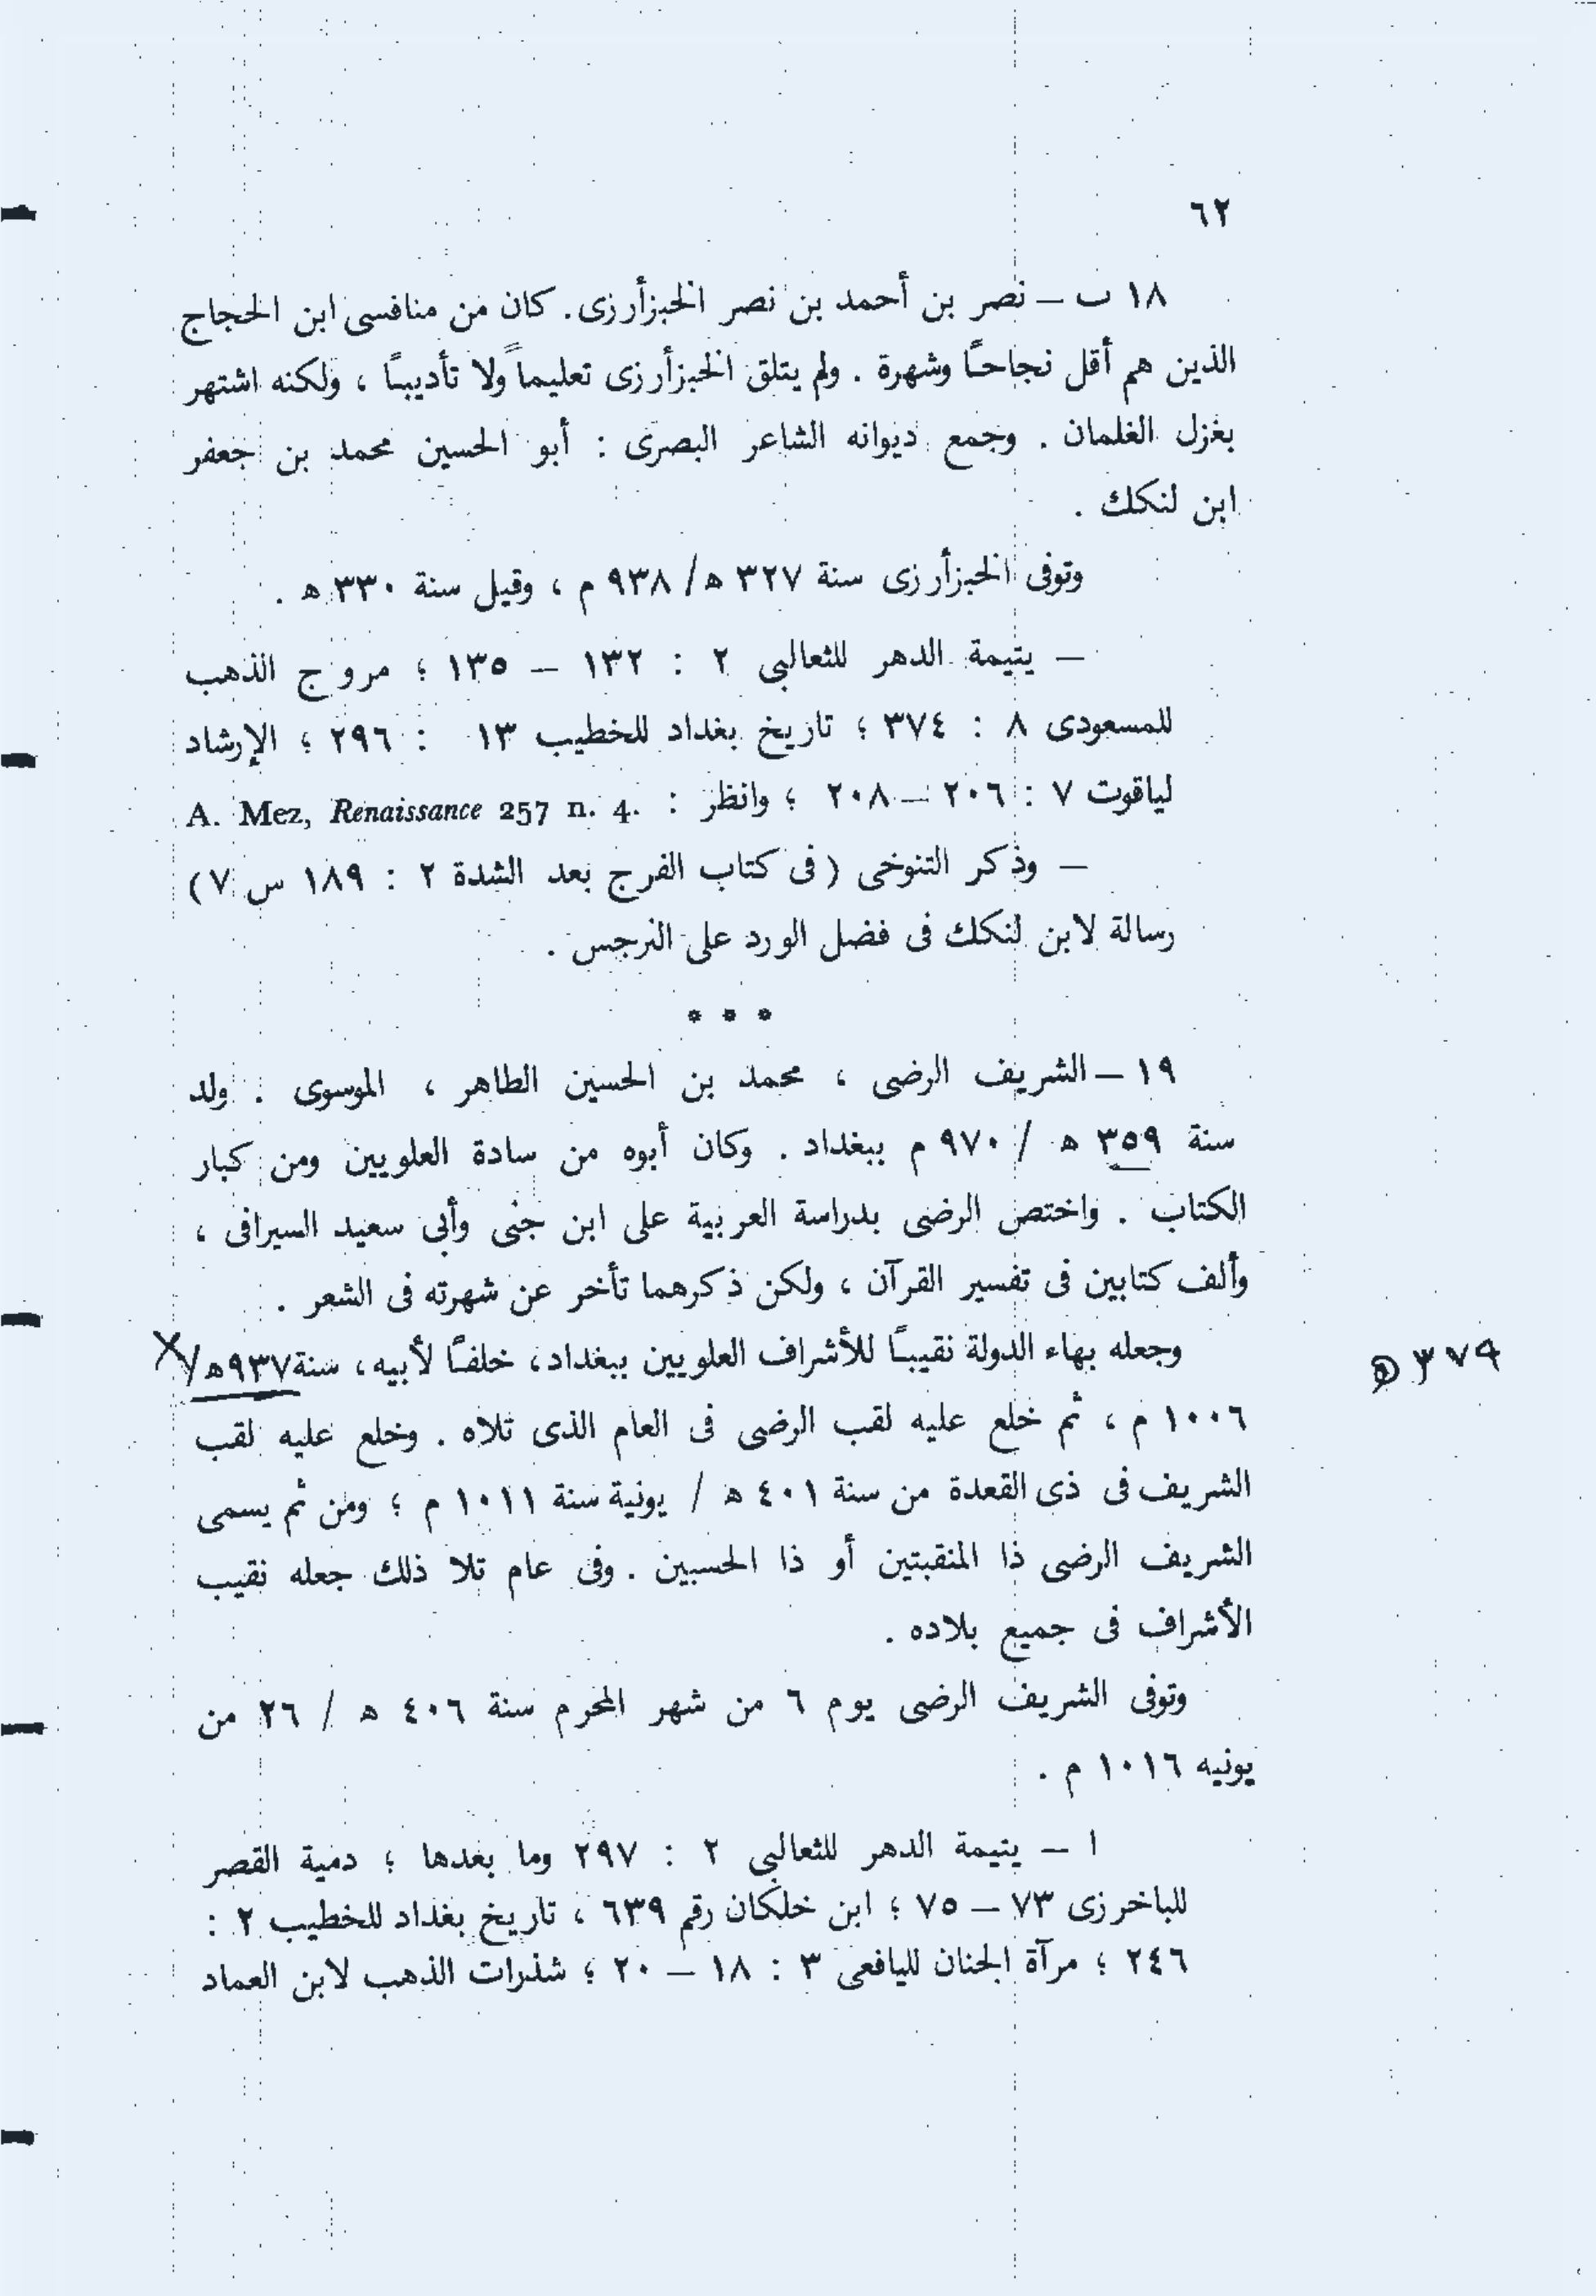 ٦٢
١٨ ب — نصر بن أحمد بن نصر الخبزأرزى. كان من منافسى ابن الحجاج
الذين هم أقل نجاحاً وشهرة . ولم يتلق الخبزأرزى تعليماً ولا تأديباً ، ولكنه اشتهر
بغزل الغلمان . وجمع ديوانه الشاعر البصرى : أبو الحسين محمد بن جعفر
ابن لنكك .
وتوفى الخبزأرزى سنة ٣٢٧ ه/ ٩٣٨ م ، وقيل سنة ٣٣٠ ه .
— يتيمة الدهر للثعالبى ٢ : ١٣٢ — ١٣٥ ؛ مروج الذهب
للمسعودى ٨ : ٣٧٤ ؛ تاريخ بغداد للخطيب ١٣ : ٢٩٦ ؛ الإرشاد
لياقوت ٧ : ٢٠٦ — ٢٠٨ ؛ وانظر : A. Mez, Renaissance 257 n. 4.
— وذكر التنوخى ( فى كتاب الفرج بعد الشدة ٢ : ١٨٩ س ٧ )
رسالة لابن لنكك فى فضل الورد على النرجس .
* * *
١٩ — الشريف الرضى ، محمد بن الحسين الطاهر ، الموسوى . ولد
سنة ٣٥٩ ه / ٩٧٠ م ببغداد . وكان أبوه من سادة العلويين ومن كبار
الكتاب . واختص الرضى بدراسة العربية على ابن جنى وأبى سعيد السيرافى ،
وألف كتابين فى تفسير القرآن ، ولكن ذكرهما تأخر عن شهرته فى الشعر .
وجعله بهاء الدولة نقيباً للأشراف العلويين ببغداد، خلفاً لأبيه، سنة ٩٣٧ه/ X
٣٧٩ ه
١٠٠٦ م ، ثم خلع عليه لقب الرضى فى العام الذى تلاه . وخلع عليه لقب
الشريف فى ذى القعدة من سنة ٤٠١ ه / يونية سنة ١٠١١ م ؛ ومن ثم يسمى
الشريف الرضى ذا المنقبتين أو ذا الحسبين . وفى عام تلا ذلك جعله نقيب
الأشراف فى جميع بلاده .
وتوفى الشريف الرضى يوم ٦ من شهر المحرم سنة ٤٠٦ ه / ٢٦ من
يونيه ١٠١٦ م .
ا — يتيمة الدهر للثعالبى ٢ : ٢٩٧ وما بعدها ؛ دمية القصر
للباخرزى ٧٣ — ٧٥ ؛ ابن خلكان رقم ٦٣٩ ، تاريخ بغداد للخطيب ٢ :
٢٤٦ ؛ مرآة الجنان لليافعى ٣ : ١٨ — ٢٠ ؛ شذرات الذهب لابن العماد